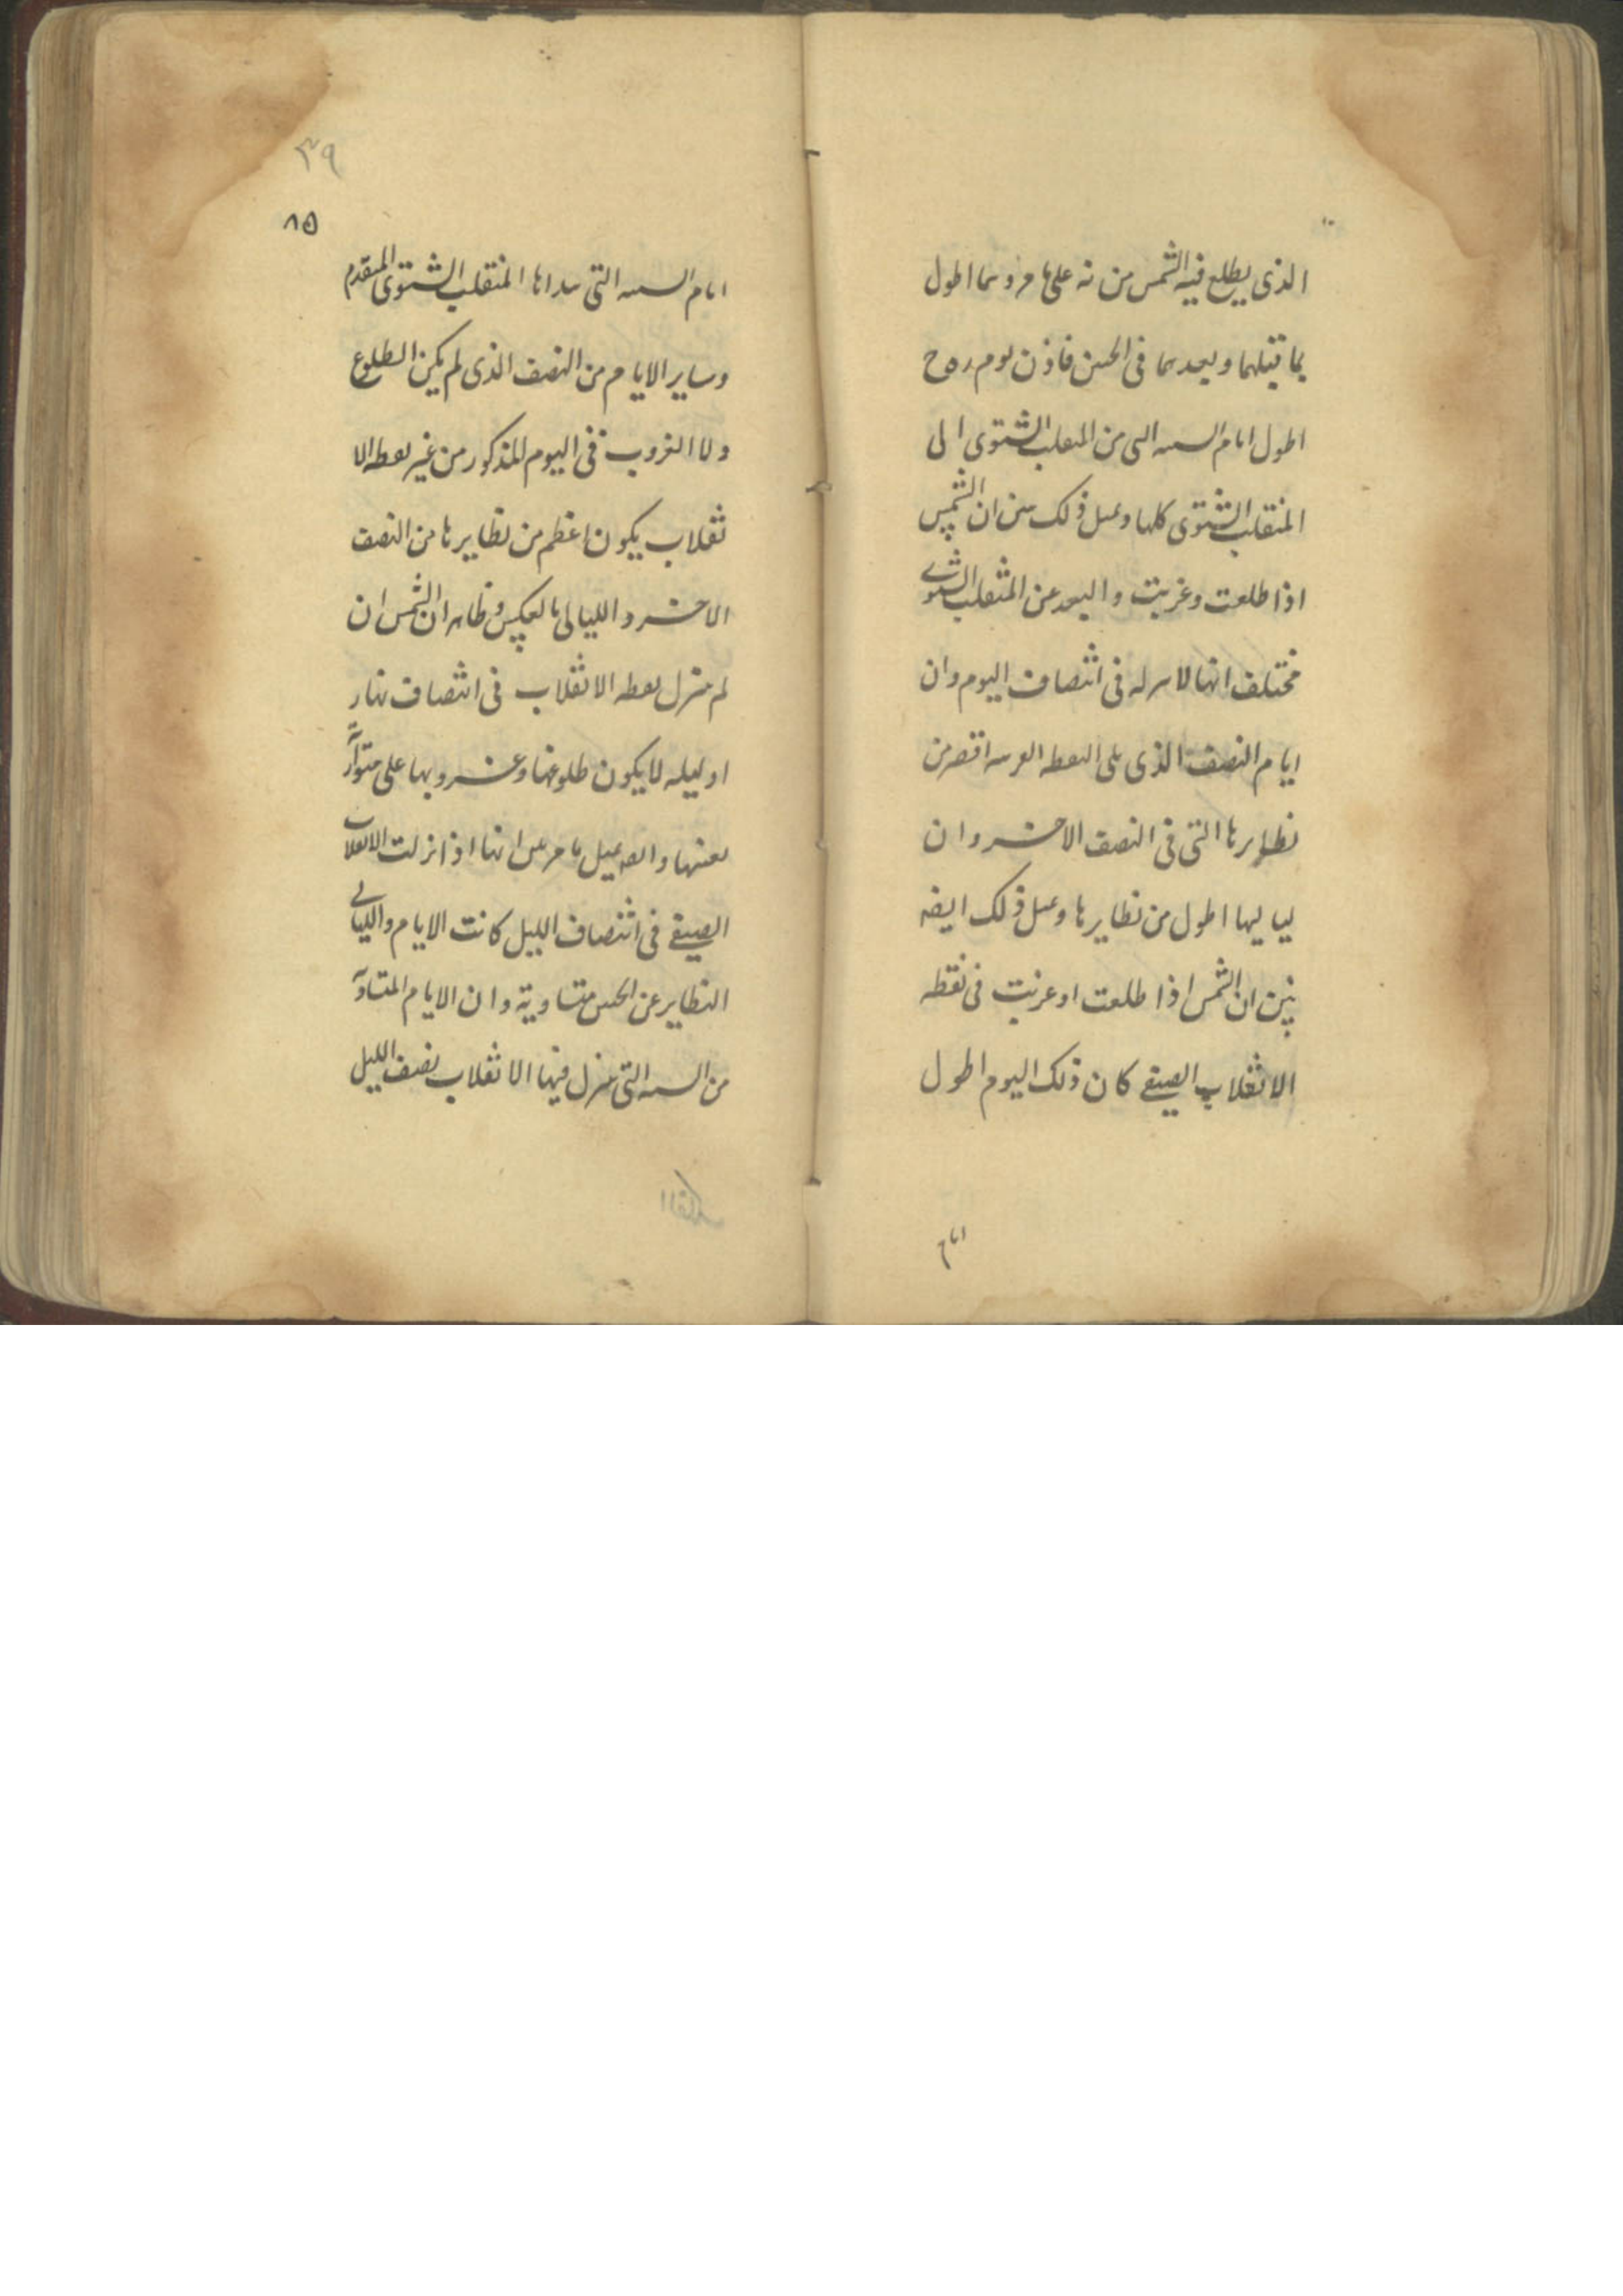 الذى يطلع فيه الشمس من ته على ما مر وهما اطول
مما قبلهما وبعدهما فى الحس فاذن يوم ره ح
اطول ايام السنه التى من المنقلب الشتوى الى
المنقلب الشتوى كلها وبمثل ذلك يتبين ان الشمس
اذا طلعت وغربت والبعد عن المنقلب الشتوى
مختلف انها لا تنزله فى انتصاف اليوم وان
ايام النصف الذى يلى النقطه القريبه اقصر من
نظايرها التى فى النصف الاخر وان
لياليها اطول من نظايرها وبمثل ذلك ايضه
يتبين ان الشمس اذا طلعت او غربت فى نقطه
الانقلاب الصيفى كان ذلك اليوم اطول
ايام
٣٩
٨٥
ايام السنه التى مبداها المنقلب الشتوى المتقدم
وساير الايام من النصف الذى لم يكن الطلوع
ولا الغروب فى اليوم المذكور من غير نقطه الا
نقلاب يكون اعظم من نظايرها من النصف
الاخر والليالى بالعكس وظاهر ان الشمس ان
لم تنزل نقطه الانقلاب فى انتصاف نهار
او ليله لا يكون طلوعها وغروبها على متوازية
بعينها وايضه بمثل ما مر يتبين انها اذا نزلت الانقلاب
الصيفى فى انتصاف الليل كانت الايام والليالى
النظاير عن الحس متساوية وان الايام المتساوية
من السنه التى تنزل فيها الانقلاب نصف الليل